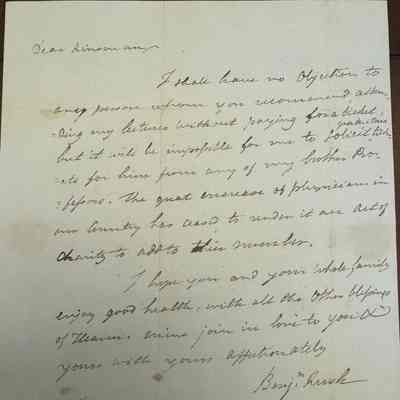 Dear Kinsman,
I shall have no Objection to
any person whom you recommend atten-
-ding my lectures without paying for a ticket,
but it will be impossible for me to solicit tick-
-ets for him from any of my brother Pro-
-fessors. The great increase of physicians in
our Country has ceased to render it an act of
Charity to add to their number.
I hope you and your whole family
enjoy good health, with all the Other blessings
of Heaven. Mine join in love to you &
yours with yours affectionately
Benjn Rush